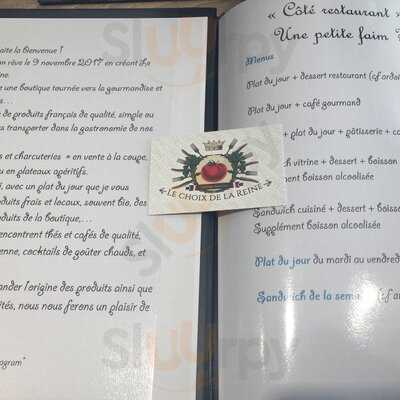 aite la bienvenue !
on rêve le 9 novembre 2017 en créant La
ine.
e une boutique tournée vers la gourmandise et
s...
de produits français de qualité, simple ou
s transporter dans la gastronomie de nos
s et charcuteries » en vente à la coupe,
u en plateaux apéritifs.
i, avec un plat du jour que je vous
duits frais et locaux, souvent bio, des
duits de la boutique,...
encontrent thés et cafés de qualité,
enne, cocktails de goûter chauds, et
ander l'origine des produits ainsi que
ités, nous nous ferons un plaisir de
agram"
LE CHOIX DE LA REINE
« Côté restaurant »
Une petite faim ?
Menus
Plat du jour + dessert restaurant (cf ardoi
Plat du jour + café gourmand
plat du jour + pâtisserie + ca
vitrine + dessert + boisson
ment boisson alcoolisée
Sandwich cuisiné + dessert + bois
Supplément boisson alcoolisée
Plat du jour du mardi au vendred
Sandwich de la sema